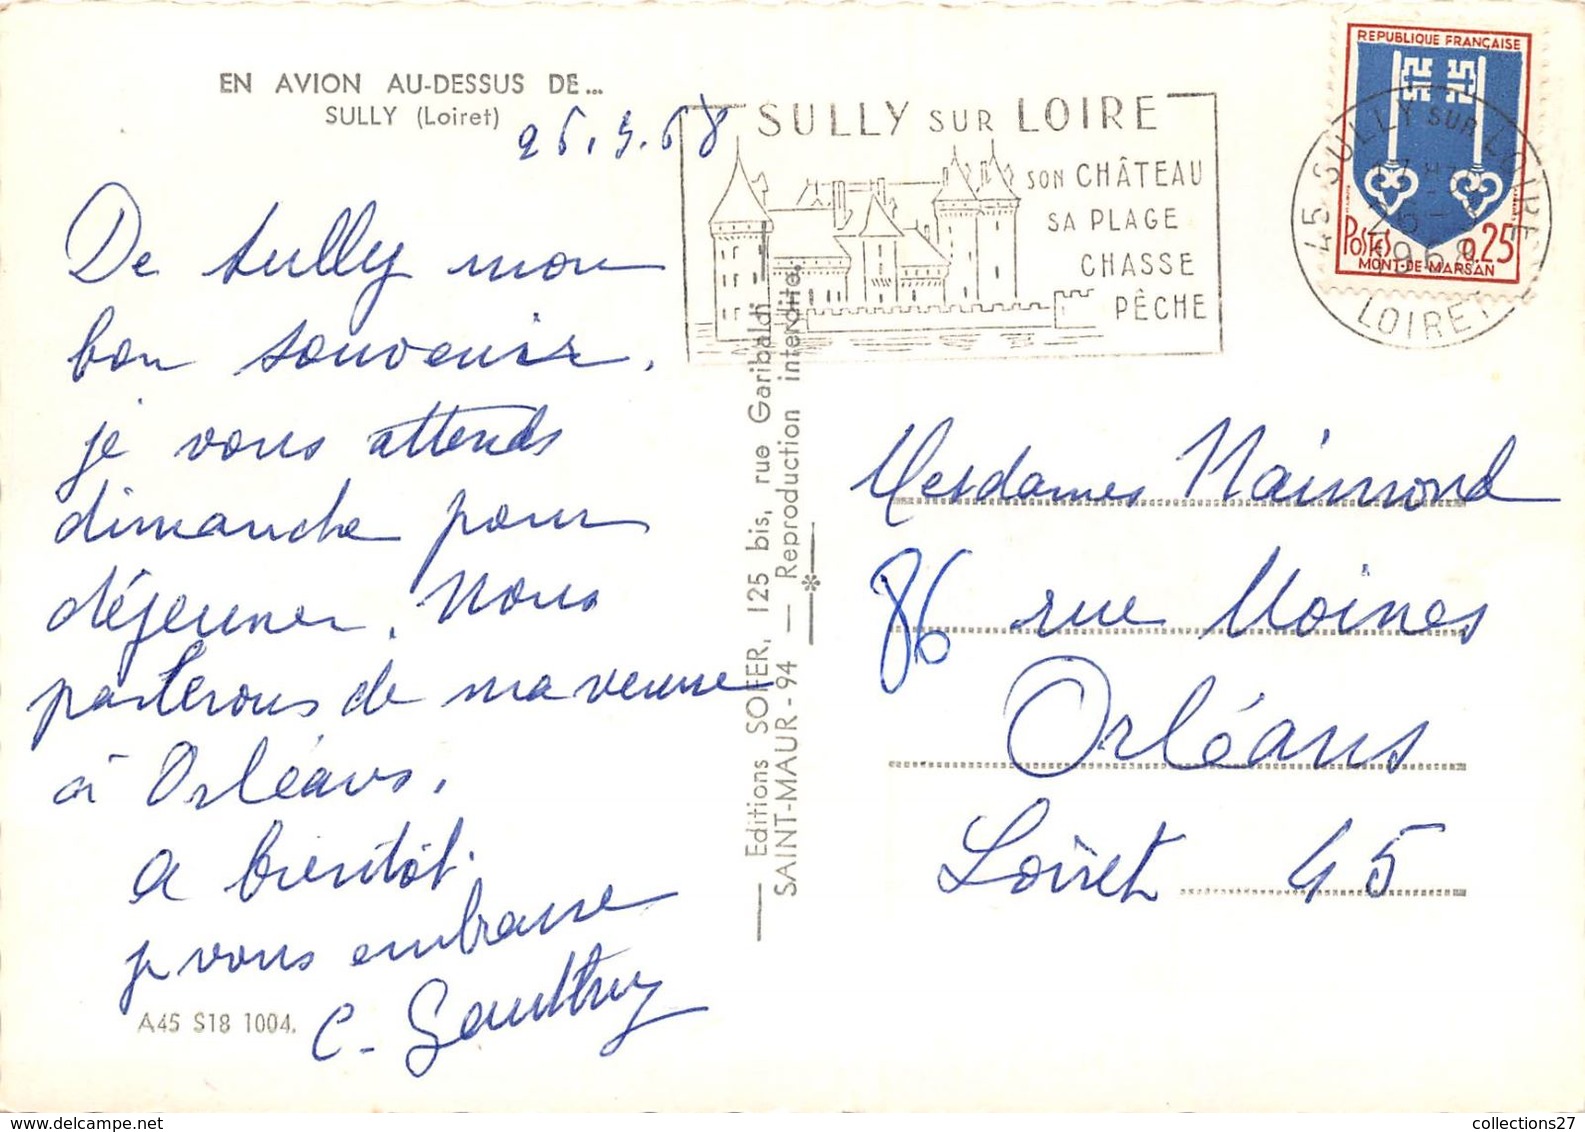 EN AVION AU-DESSUS DE...
SULLY (Loiret)
De Sully mon
bon souvenir.
je vous attends
dimanche pour
déjeuner. Nous
parlerons de ma venue
à Orléans.
a bientôt.
je vous embrasse
C. Gauttry
A45 S18 1004.
Editions SOFER, 125 bis, rue Garibaldi
SAINT-MAUR - 94 — Reproduction interdite.
SULLY SUR LOIRE
SON CHÂTEAU
SA PLAGE
CHASSE
PÊCHE
REPUBLIQUE FRANÇAISE
POSTES 0,25
MONT-DE-MARSAN
45 SULLY SUR LOIRE
1968
LOIRET
Mesdames Naimond
86 rue Moines
Orléans
Loiret 45
collections27